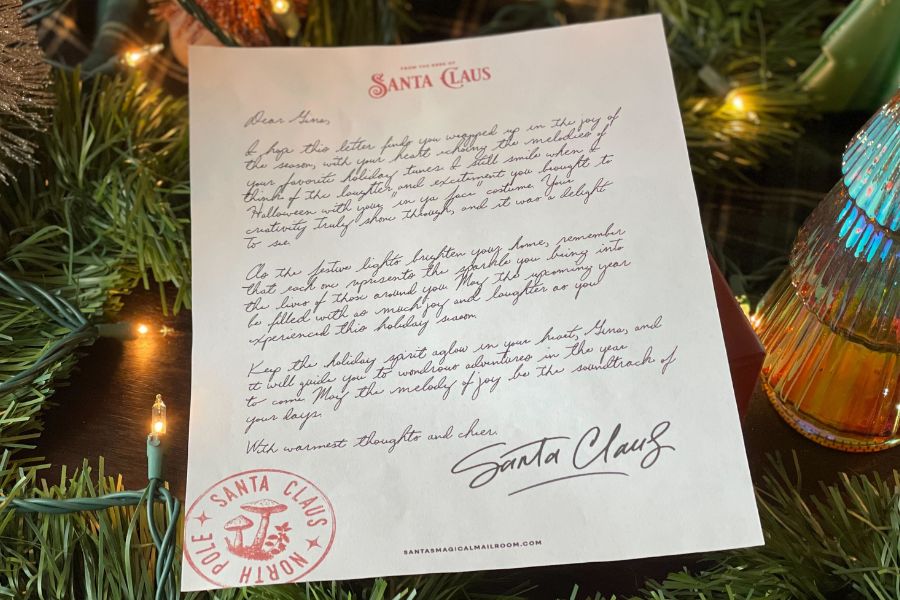 FROM THE DESK OF
SANTA CLAUS
Dear Gina,
I hope this letter finds you wrapped up in the joy of
the season, with your heart echoing the melodies of
your favorite holiday tunes. I still smile when I
think of the laughter and excitement you brought to
Halloween with your "in ya face" costume. Your
creativity truly shone though, and it was a delight
to see.
As the festive lights brighten your home, remember
that each one represents the sparkle you bring into
the lives of those around you. May the upcoming year
be filled with as much joy and laughter as you
experienced this holiday season.
Keep the holiday spirit aglow in your heart, Gina, and
it will guide you to wondrous adventures in the year
to come. May the melody of joy be the soundtrack of
your days.
With warmest thoughts and cheer,
Santa Claus
SANTA CLAUS
NORTH POLE
SANTASMAGICALMAILROOM.COM